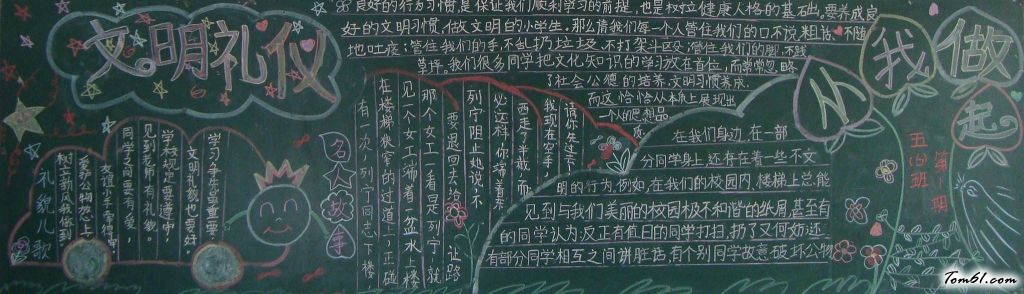 文明礼仪
良好的行为习惯,是保证我们顺利学习的前提,也是树立健康人格的基础。要养成良
好的文明习惯,做文明的小学生,那么请我们每一个人管住我们的口,不说粗话,不随
地吐痰;管住我们的手,不乱扔垃圾,不打架斗殴;管住我们的脚,不践
草坪。我们很多同学把文化知识的学习放在首位,而常常忽略
了社会公德的培养,文明习惯养成,
而这恰恰从本质上展现出
一个人的思想品
质。
在我们身边,在一部
分同学身上,还存在着一些不文
明的行为,例如,在我们的校园内、楼梯上总能
见到与我们美丽的校园极不和谐的纸屑,甚至有
的同学认为:反正有值日的同学打扫,扔了又何妨;还
有部分同学相互之间讲脏话,有个别同学故意破坏公物
从我做起
五(四)班
第1期
礼貌儿歌
学习争先最重要,
文明礼貌也要好
学校规定要遵守,
见到老师有礼貌。
同学之间要有爱,
爱护公物放心上,
树立新风我做到
名人故事
有一次,列宁同志下楼,
在楼梯狭窄的过道上,正碰
见一个女工端着一盆水上楼
那个女工一看是列宁,就
要退回去给
让路
列宁阻止她说:不
必这样,你端着
西走了半截,而
我现在空手,
请你先过去
Tom61.com